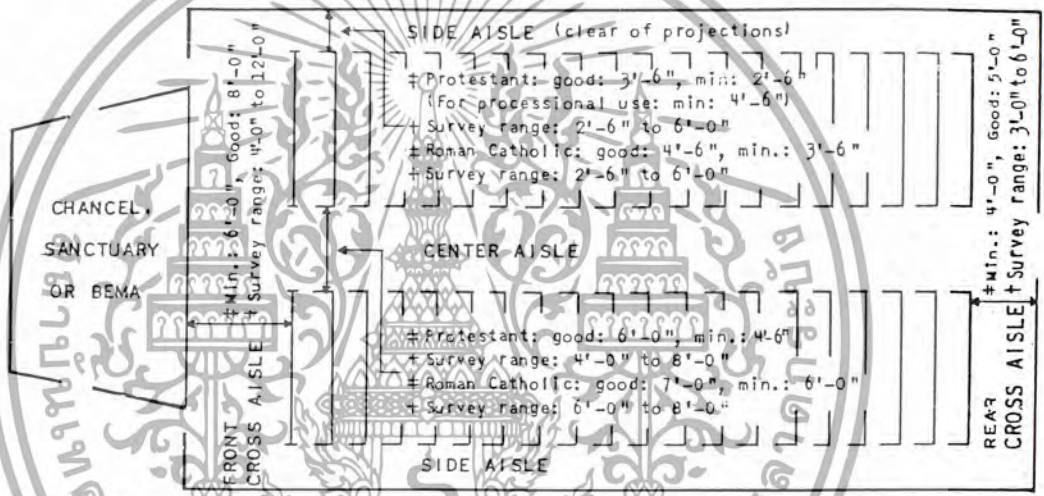 SIDE AISLE (clear of projections)
‡ Protestant: good: 3'-6", min: 2'-6"
(For processional use: min: 4'-6")
+ Survey range: 2'-6" to 6'-0"
‡ Roman Catholic: good: 4'-6", min.: 3'-6"
+ Survey range: 2'-6" to 6'-0"
CHANCEL,
SANCTUARY
OR BEMA
FRONT
CROSS AISLE
‡ Min.: 6'-0", Good: 8'-0"
† Survey range: 4'-0" to 12'-0"
CENTER AISLE
‡ Protestant: good: 6'-0", min.: 4'-6"
+ Survey range: 4'-0" to 8'-0"
‡ Roman Catholic: good: 7'-0", min.: 6'-0"
+ Survey range: 6'-0" to 8'-0"
SIDE AISLE
REAR
CROSS AISLE
‡ Min.: 4'-0", Good: 5'-0"
† Survey range: 3'-0" to 6'-0"